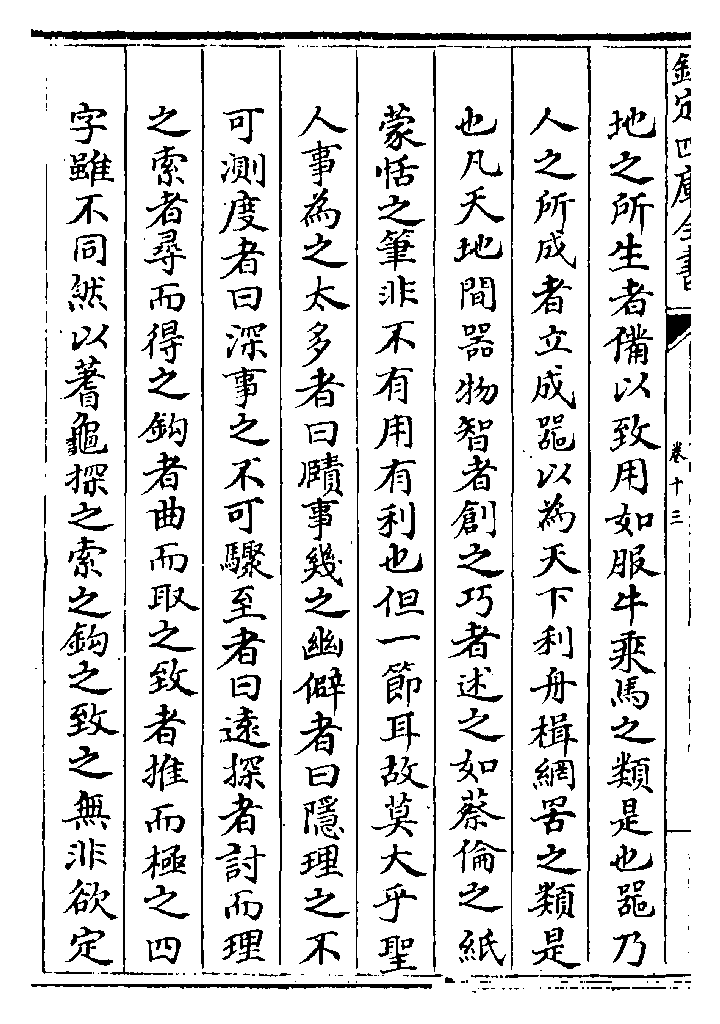 欽定四庫全書
卷十三
地之所生者備以致用如服牛乘馬之類是也噐乃
人之所成者立成噐以為天下利舟楫網罟之類是
也凡天地間器物智者創之巧者述之如蔡倫之紙
蒙恬之筆非不有用有利也但一節耳故莫大乎聖
人事為之太多者曰賾事幾之幽僻者曰隱理之不
可測度者曰深事之不可驟至者曰遠探者討而理
之索者尋而得之鈎者曲而取之致者推而極之四
字雖不同然以蓍龜探之索之鈎之致之無非欲定